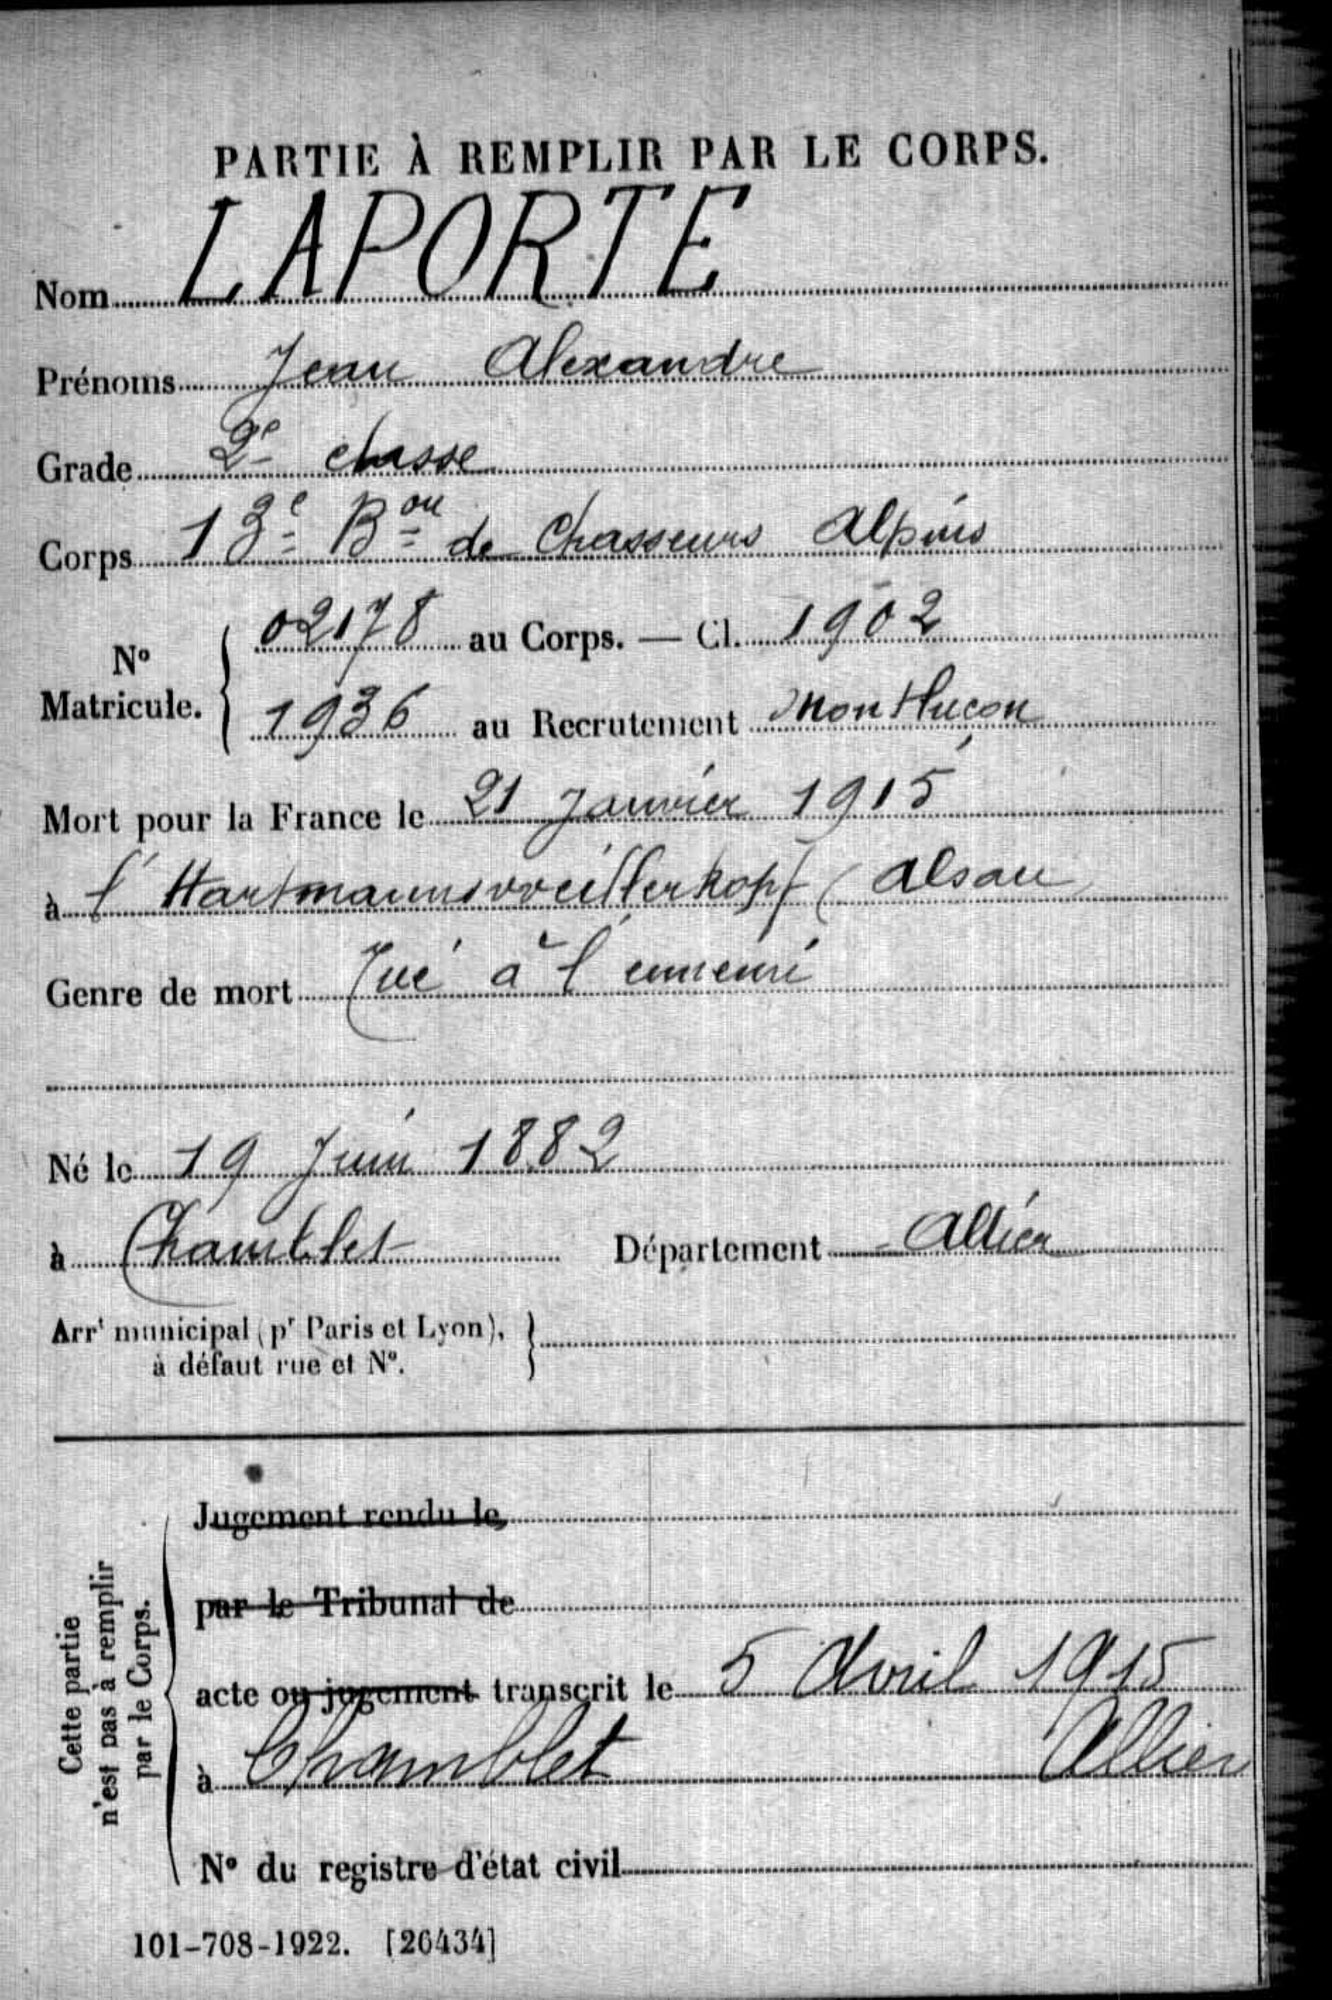 PARTIE À REMPLIR PAR LE CORPS.
Nom LAPORTE
Prénoms Jean Alexandre
Grade 2e classe
Corps 13e Bon de Chasseurs Alpins
No Matricule. { 02178 au Corps. — Cl. 1902
1936 au Recrutement Montluçon
Mort pour la France le 21 Janvier 1915
à l'Hartmannsweillerkopf (Alsace
Genre de mort Tué à l'ennemi
Né le 19 Juin 1882
à Chamblet Département Allier
Arrt municipal (pr Paris et Lyon),
à défaut rue et No.
Cette partie
n'est pas à remplir
par le Corps.
Jugement rendu le,
par le Tribunal de
acte ou jugement transcrit le 5 Avril 1915
à Chamblet Allier
No du registre d'état civil
101-708-1922. [26434]